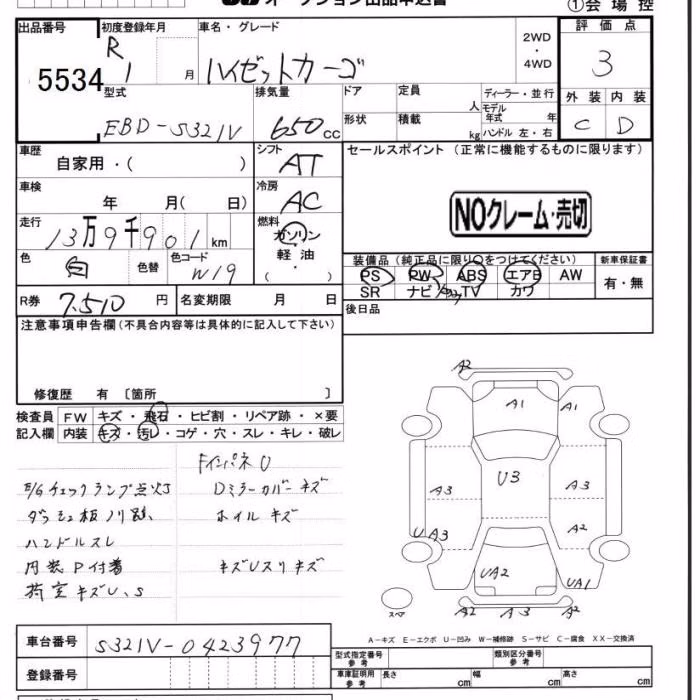 オークション出品申込書
①会場控
出品番号 初度登録年月 車名・グレード 2WD・4WD 評価点
5534 R 1 月 ハイゼットカーゴ 3
型式 排気量 ドア 定員 人 ディーラー・並行 外装 内装
EBD-S321V 650 cc 形状 積載 kg モデル年式 年 ハンドル 左・右 C D
車歴 シフト セールスポイント (正常に機能するものに限ります)
自家用・( ) AT
車検 冷房
年 月( 日) AC
NOクレーム・売切
走行 燃料
13万9千901km ガソリン・軽油 ( )
色 色替 色コード 装備品(純正品に限り○をつけてください) 新車保証書
白 W19 PS PW ABS エアB AW 有・無
SR ナビ TV カワ
R券 7,510円 名変期限 月 日 後日品
注意事項申告欄(不具合内容等は具体的に記入して下さい)
修復歴 有 〔箇所 〕
検査員 FW キズ・飛石・ヒビ割・リペア跡・×要
記入欄 内装 キズ・汚レ・コゲ・穴・スレ・キレ・破レ
FインパネU
E/Gチェックランプ点灯 Dミラーカバーキズ
ダッシュ板ノリ跡 ホイルキズ
ハンドルスレ
内装P付着 キズUスリキズ
荷室キズU、S
A2
A1 A1
U3
A3 A3
UA3 A2
UA2 UA1
スペア A2 A3 A2
A-キズ E-エクボ U-凹み W-補修跡 S-サビ C-腐食 XX-交換済
車台番号 S321V-0423977
型式指定番号 参考 類別区分番号 参考
登録番号 車庫証明用 参考 長さ cm 幅 cm 高さ cm